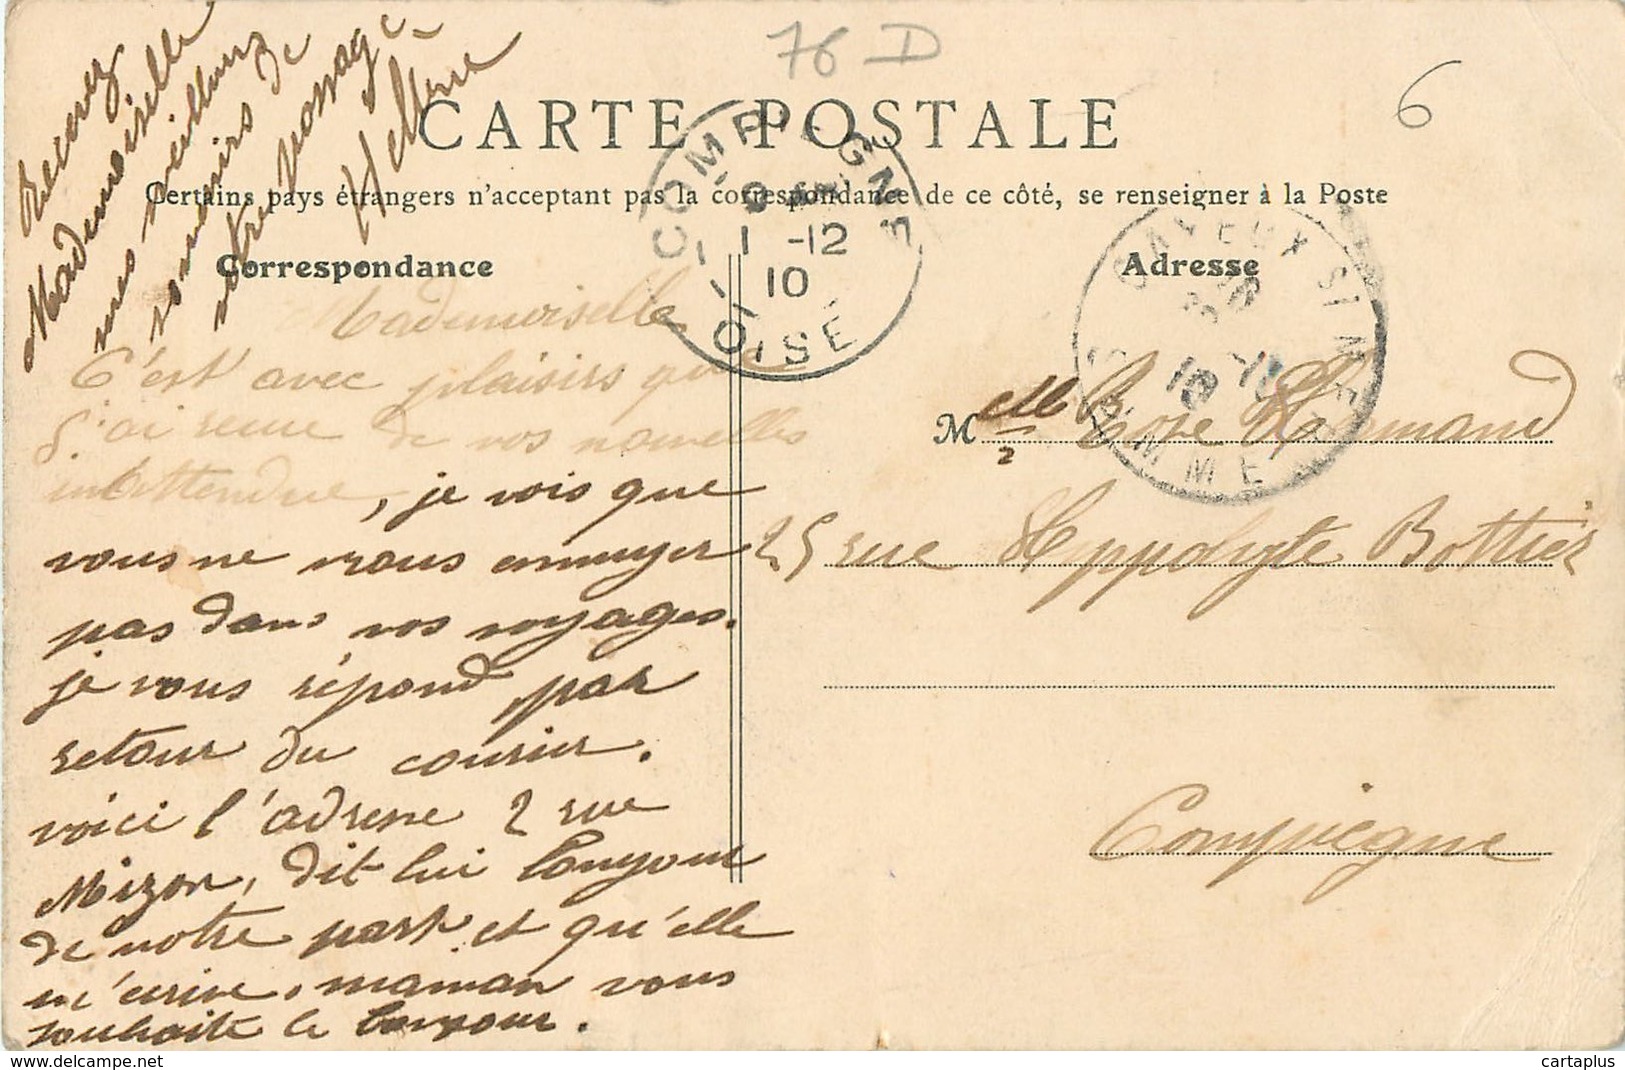 76 D
6
CARTE POSTALE
Certains pays étrangers n'acceptant pas la correspondance de ce côté, se renseigner à la Poste
Correspondance
Adresse
COMPIEGNE
1 -12
10
OISE
CAYEUX S/ MER
SOMME
Mademoiselle
C'est avec plaisirs que
j'ai recue de vos nouvelles
inattendue, je vois que
vous ne vous ennuyer
pas dans vos voyages.
je vous répond par
retour du courier.
voici l'adresse 2 rue
Mizon, dit lui bonjour
de notre part et qu'elle
m'écrive, maman vous
souhaite le bonjour.
Recevez
Mademoiselle
mes meilleurs
souvenirs de
votre passage
Hélène
Melle Rose
25 rue Hyppolyte Bottier
Compiègne
cartaplus